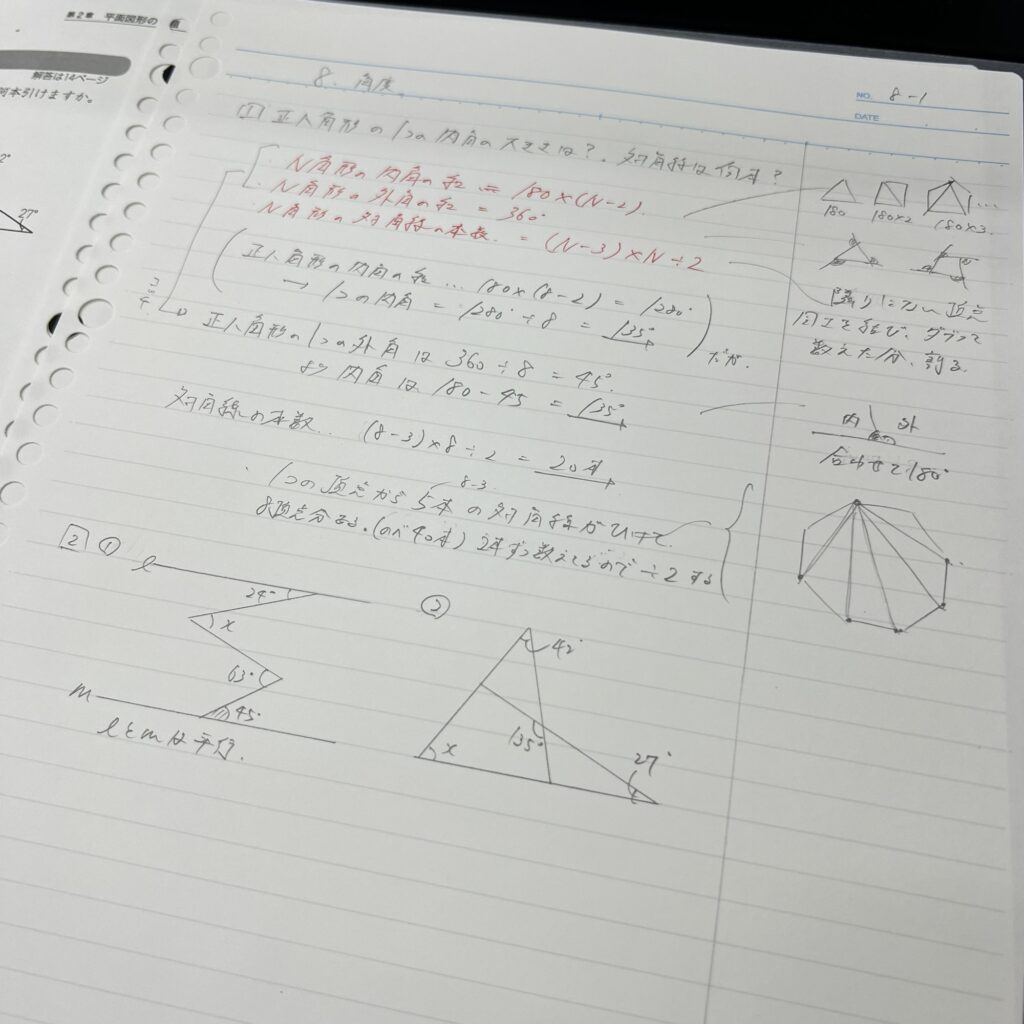 第2章 平面図形の
解答は14ページ
何本引けますか。
2°
27°
NO. 8-1
DATE
8. 角度
1 正八角形の1つの内角の大きさは?. 対角線は何本?
・N角形の内角の和 = 180×(N-2).
・N角形の外角の和 = 360°
・N角形の対角線の本数. = (N-3)×N÷2
正八角形の内角の和… 180×(8-2) = 1280°
→ 1つの内角 = 1280°÷8 = 135°
だが.
正八角形の1つの外角は 360÷8 = 45°
より 内角は 180-45 = 135°
対角線の本数… (8-3)×8÷2 = 20本
8-3
・1つの頂点から 5本の対角線がひけて
8頂点分ある.(のべ40本) 2本ずつ数えてるので÷2する
180
180×2
180×3.
…
隣りにない頂点
同士を結び、ダブって
数えた分、割る
内
外
合わせて180°
2 ①
ℓ
24°
x
63°
m
45°
ℓとmは平行.
②
42°
135°
x
27°